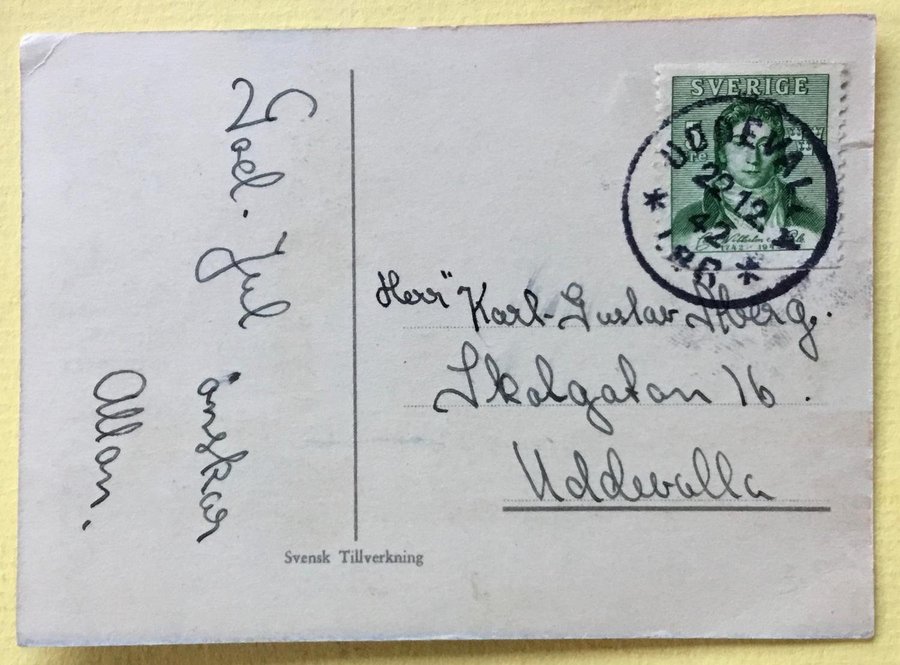 God. Jul
önskar
Allan.
SVERIGE
5
UDDEVALLA
22 12
42
* LBR *
1742 - 1942
Herr Karl-Gustav
Skolgatan 16.
Uddevalla
Svensk Tillverkning